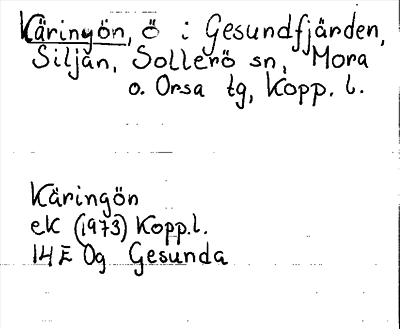 Käringön, ö i Gesundfjärden,
Siljan, Sollerö sn, Mora
o. Orsa tg, Kopp. l.
Käringön
ek (1973) Kopp.l.
14 E 0g Gesunda